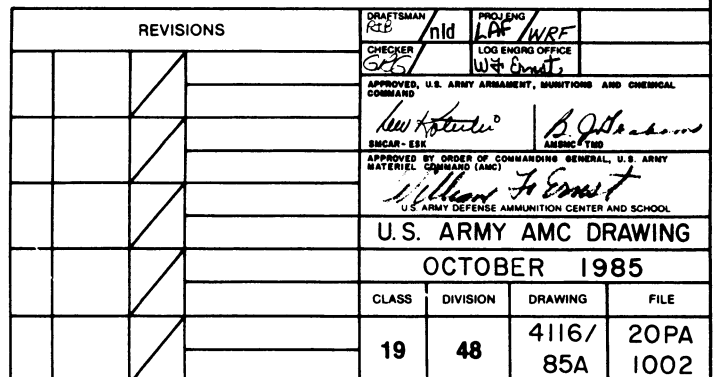 REVISIONS
DRAFTSMAN
RTB nld
PROJ ENG
LAF / WRF
CHECKER
LOG ENGRG OFFICE
W F Ernst
APPROVED, U.S. ARMY ARMAMENT, MUNITIONS AND CHEMICAL
COMMAND
SMCAR - ESK
AMSMC - TMD
APPROVED BY ORDER OF COMMANDING GENERAL, U.S. ARMY
MATERIEL COMMAND (AMC)
William F Ernst
U.S. ARMY DEFENSE AMMUNITION CENTER AND SCHOOL
U.S. ARMY AMC DRAWING
OCTOBER 1985
CLASS DIVISION DRAWING FILE
19 48 4116/ 20PA
85A 1002